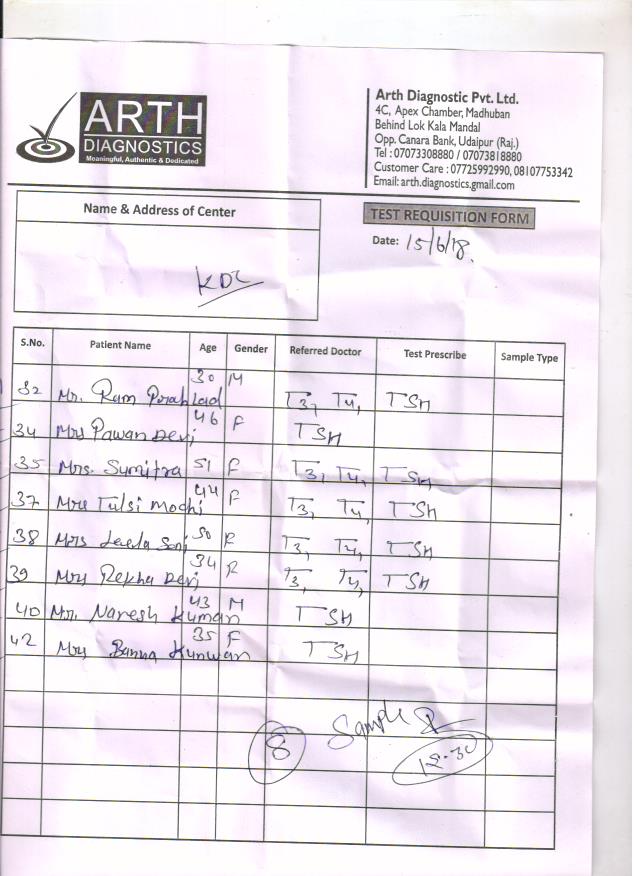 ARTH
DIAGNOSTICS
Meaningful, Authentic & Dedicated
Arth Diagnostic Pvt. Ltd.
4C, Apex Chamber, Madhuban
Behind Lok Kala Mandal
Opp. Canara Bank, Udaipur (Raj.)
Tel : 07073308880 / 07073818880
Customer Care : 07725992990, 08107753342
Email: arth.diagnostics.gmail.com
Name & Address of Center
KDC
TEST REQUISITION FORM
Date: 15/6/18.
S.No. Patient Name Age Gender Referred Doctor Test Prescribe Sample Type
32 Mr. Ram Prahlad 30 M T3, T4, TSH
34 Mrs Pawan Devi 46 F TSH
35 Mrs. Sumitra 51 F T3, T4, TSH
37 Mrs Tulsi Mochi 44 F T3, T4, TSH
38 Mrs Leela Soni 50 F T3, T4, TSH
39 Mrs Rekha Devi 34 F T3, T4, TSH
40 Mr. Naresh Kumar 43 M TSH
42 Mrs Kunwar 35 F TSH
8 Sample R